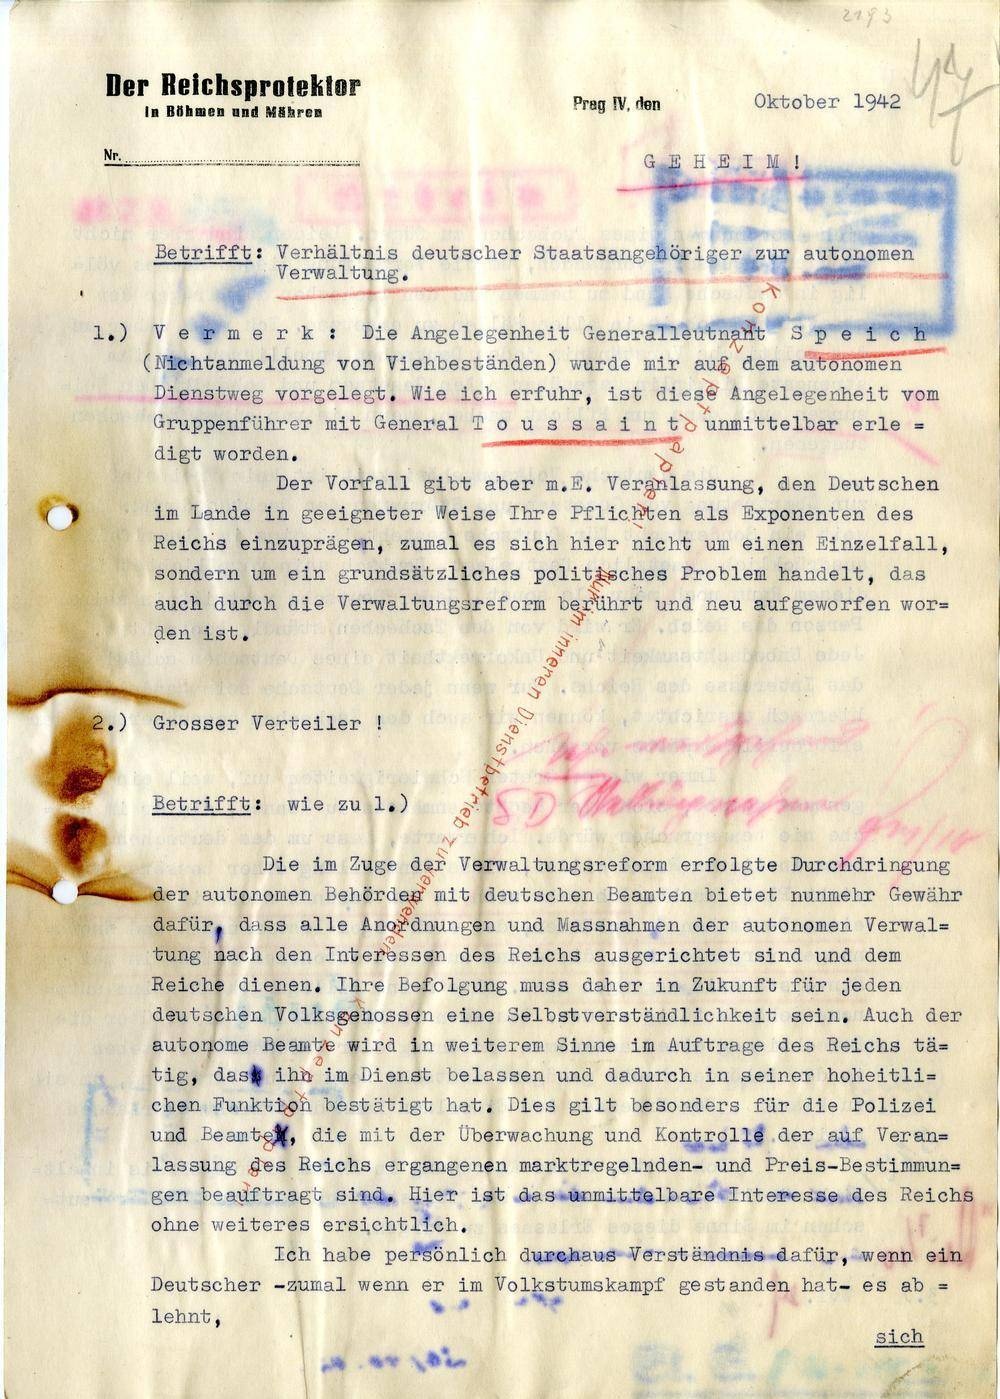 2193
47
Der Reichsprotektor
in Böhmen und Mähren
Prag IV, den Oktober 1942
Nr.
G E H E I M !
Betrifft: Verhältnis deutscher Staatsangehöriger zur autonomen
Verwaltung.
1.) V e r m e r k : Die Angelegenheit Generalleutnant S p e i c h
(Nichtanmeldung von Viehbeständen) wurde mir auf dem autonomen
Dienstweg vorgelegt. Wie ich erfuhr, ist diese Angelegenheit vom
Gruppenführer mit General T o u s s a i n t unmittelbar erle =
digt worden.
Der Vorfall gibt aber m.E. Veranlassung, den Deutschen
im Lande in geeigneter Weise Ihre Pflichten als Exponenten des
Reichs einzuprägen, zumal es sich hier nicht um einen Einzelfall,
sondern um ein grundsätzliches politisches Problem handelt, das
auch durch die Verwaltungsreform berührt und neu aufgeworfen wor=
den ist.
2.) Grosser Verteiler !
Betrifft: wie zu 1.)
Die im Zuge der Verwaltungsreform erfolgte Durchdringung
der autonomen Behörden mit deutschen Beamten bietet nunmehr Gewähr
dafür, dass alle Anordnungen und Massnahmen der autonomen Verwal=
tung nach den Interessen des Reichs ausgerichtet sind und dem
Reiche dienen. Ihre Befolgung muss daher in Zukunft für jeden
deutschen Volksgenossen eine Selbstverständlichkeit sein. Auch der
autonome Beamte wird in weiterem Sinne im Auftrage des Reichs tä=
tig, das ihn im Dienst belassen und dadurch in seiner hoheitli=
chen Funktion bestätigt hat. Dies gilt besonders für die Polizei
und Beamte, die mit der Überwachung und Kontrolle der auf Veran=
lassung des Reichs ergangenen marktregelnden- und Preis-Bestimmun=
gen beauftragt sind. Hier ist das unmittelbare Interesse des Reichs
ohne weiteres ersichtlich.
Ich habe persönlich durchaus Verständnis dafür, wenn ein
Deutscher -zumal wenn er im Volkstumskampf gestanden hat- es ab =
lehnt,
sich
Konzeptpapier!
Nur im inneren Dienstbetrieb zu verwenden
Konzeptpapier!